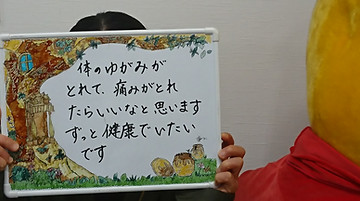 体のゆがみが
とれて、痛みがとれ
たらいいなと思います
ずっと健康でいたい
です